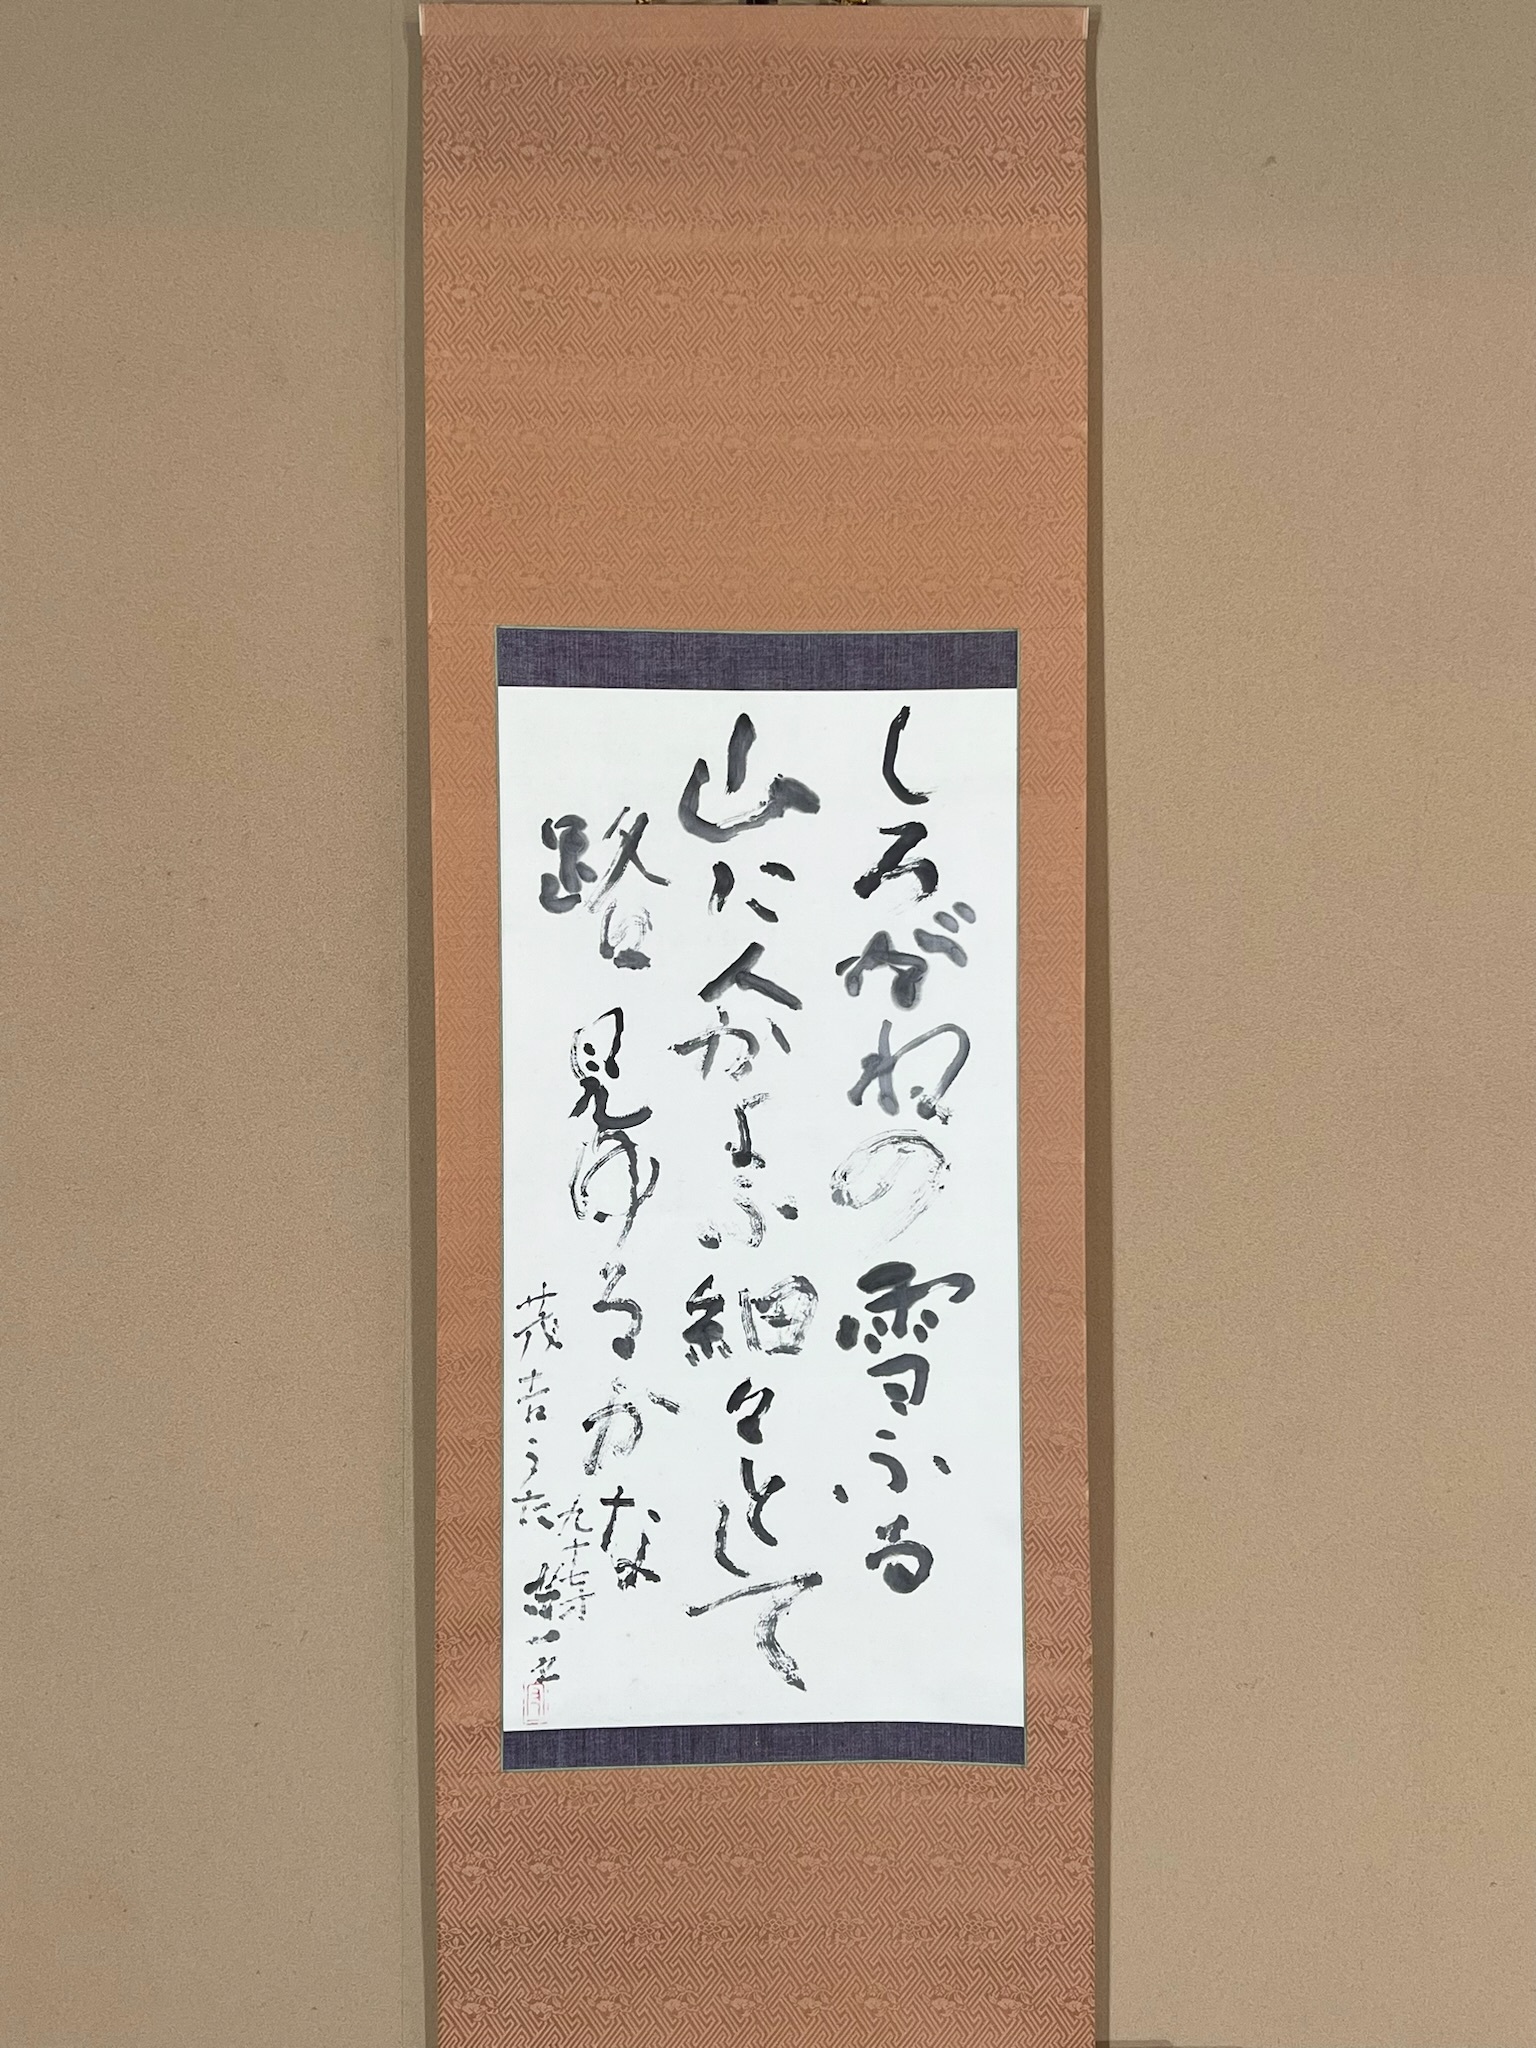 しろがねの雪ふる
山に人かよふ細々として
路見ゆるかな
茂吉之哥
九十七才